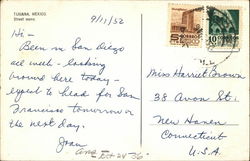 TIJUANA, MEXICO
Street scene
9/11/52
Hi -
Been in San Diego
all week - looking
around here today -
expect to head for San
Francisco tomorrow or
the next day.
Joan
Miss Harriet Brown
38 Avon St.
New Haven
Connecticut
U.S.A.